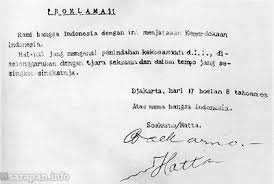 P R O K L A M A S I
Kami bangsa Indonesia dengan ini menjatakan Kemerdekaan
Indonesia.
Hal-hal jang mengenai pemindahan kekoeasaan d.l.l., di-
selenggarakan dengan tjara seksama dan dalam tempo jang se-
singkat-singkatnja.
Djakarta, hari 17 boelan 8 tahoen 05
Atas nama bangsa Indonesia.
Soekarno/Hatta.
Soekarno
Hatta
© sarapan.info